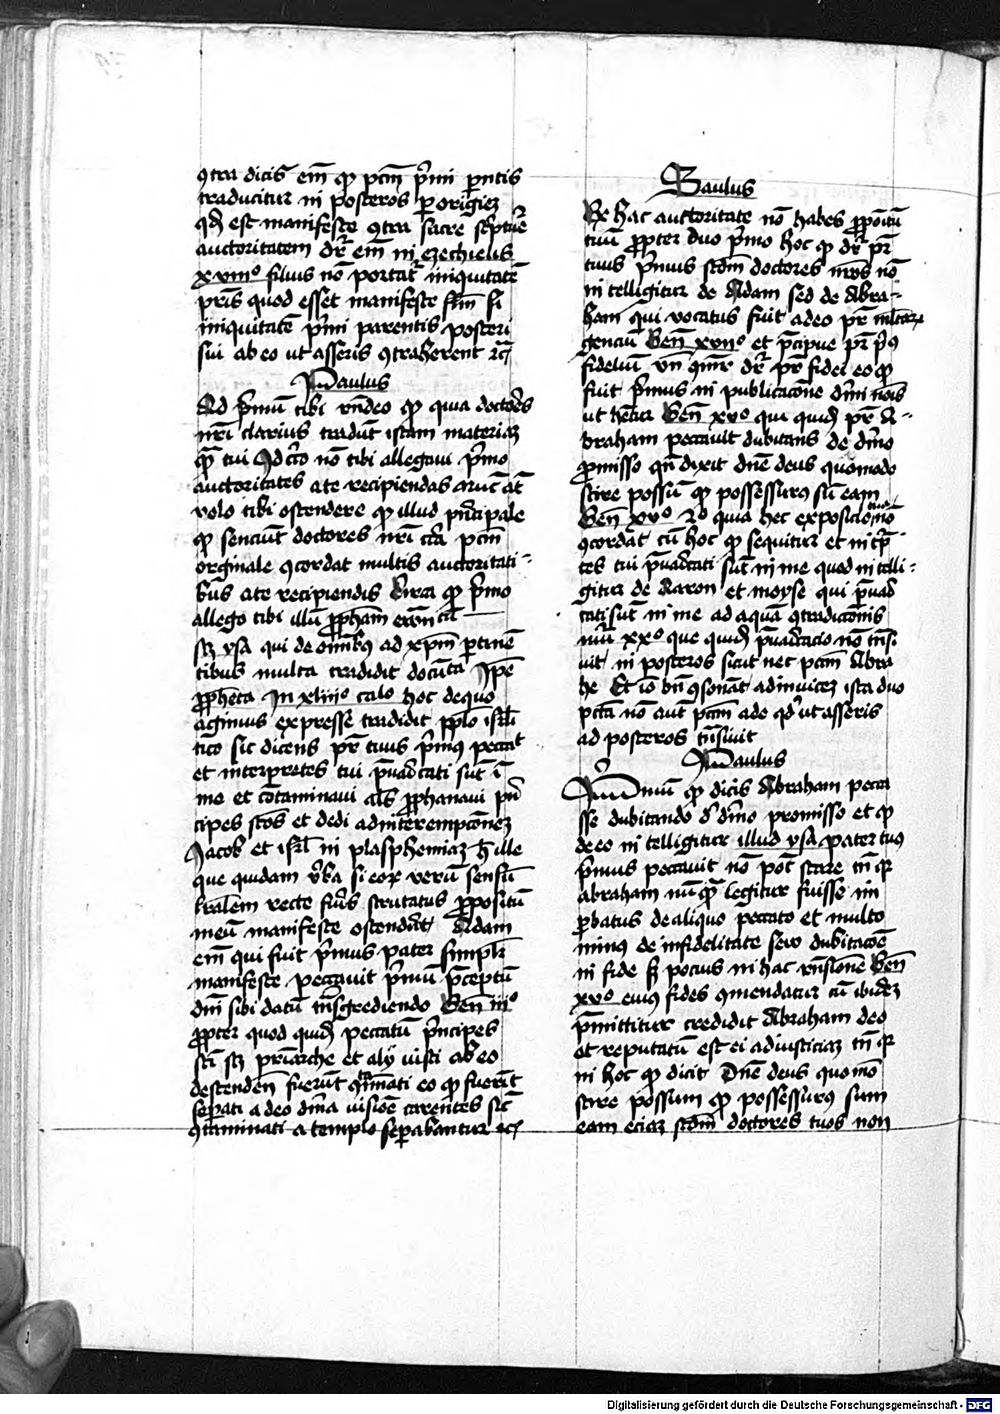 ꝯtra dicis em̄ ꝙ pctm̄ p̄mi pn̄tis
traducitur in posteros ꝑ originez
qd̄ est manifeste ꝯtra sacre sc̄pture
auctoritatem dr̄ em̄ in ezechielis
xviiiº filius nō portat iniquitatē
pris quod esset manifeste flm̄ si
iniquitatē p̄mi parentis posteri
sui ab eo ut asseris ꝯtraherent ⁊c̄
Paulus
Ad p̄mū tibi rn̄deo ꝙ quia doctores
nr̄i clarius tradūt istam materiaz
qꝫ tui nō tibi allegaui p̄mo
auctoritates a te recipiendas at̄
volo tibi ostendere ꝙ illud p̄ncipale
ꝙ senciūt doctores nr̄i circa pctm̄
orginale ꝯcordat multis auctoritati-
bus a te recipiendis Circa ꝙ p̄mo
allego tibi illū ꝓpham
scꝫ ysa qui de oīnibus ad xpm̄ ꝑtinē
tibus multa tradidit docum̄ta Ip̄e
ꝓpheta In xliiiº calo hoc de quo
agimus expresse tradidit pplo isrl̄i
tico sic dicens pr̄ tuus p̄mus peccat
et interpretes tui p̄uaricati sūt ī
me et cōtaminaui als ꝓphanaui pn̄
cipes scōs et dedi ad interempcōnez
Jacob et isrl̄ in plasphemiaz h̄ ille
que quidam v̄ba si eoꝝ verū sensū
lrālem recte fu͛is scrutatus ꝓpositū
meū manifeste ostendūt Adam
em̄ qui fuit p̄mus pater simplr̄
manifeste peccauit p̄mū p̄ceptū
dn̄i sibi datū tn̄sgrediendo Gen̄ iiiº
ꝓpter quod quidē peccatū p̄ncipes
scī scꝫ pr̄iarche et alij iusti ab eo
descenden̄ fuerūt ꝯt̄mati eo ꝙ fuerūt
seꝑati a deo diīna uisiōe carentes sic̄
ꝯtaminati a templo seꝑabantur ⁊c̄
Saulus
Ex hac auctoritate nō habes ꝓpoītū
tuū ꝓpter duo p̄mo hoc ꝙ dr̄ pr̄
tuus p̄mus scd̄m doctores nr̄os nō
intelligitur de Adam sed de Abra-
ham qui vocatus fuit a deo pr̄ mltarꝝ
genciū Gen̄ xviiº et p̄cipue pr̄ p̄us
fideliū vn̄ dr̄ pr̄ fidei eo ꝙ
fuit p̄mus in publicacōne diīni noīs
ut hētur Gen̄ xvº qui quidē pr̄ A-
braham peccauit dubitans de diīno
ꝓmisso qn̄ dixit dn̄e deus quomodo
scire possū ꝙ possessurꝰ sū eam
Gen̄ xvº 2º quia hec exposicio tua nō
ꝯcordat cū hoc ꝙ sequitur et int̄p̄-
tes tui p̄uaricati sūt in me quod intelli-
gitur de Aaron et moyse qui p̄uari
cati sūt in me ad aquā ꝯtradicōnis
nūi xxº que quidē p̄uaricacio nō tn̄si-
uit in posteros sicut nec pctm̄ Abra
he Et iō bn̄ ꝯsonāt adinuicez ista duo
pctā nō aūt pctm̄ ade qd̄ ut asseris
ad posteros tn̄siuit
Paulus
p̄mū ꝙ dicis Abraham pecca
sse dubitando de diīno promisso et ꝙ
de eo intelligitur illud ysa pater tuꝰ
p̄mus peccauit nō pōt stare tn̄ qꝛ
abraham nūqꝫ legitur fuisse im
ꝓbatus de aliquo peccato et multo
minꝰ de infidelitate seu dubitacōe
in fide sꝫ pocius in hac rn̄sione Gen̄
xvº eius fides ꝯmendatur cū ibidez
p̄mittitur credidit Abraham deo
et reputatū est ei ad iusticiaz tn̄ qꝛ
in hoc ꝙ dicit Dn̄e deus quomō
scire possum ꝙ possessurꝰ sum
eam eciaz scd̄m doctores tuos non
Digitalisierung gefördert durch die Deutsche Forschungsgemeinschaft - DFG